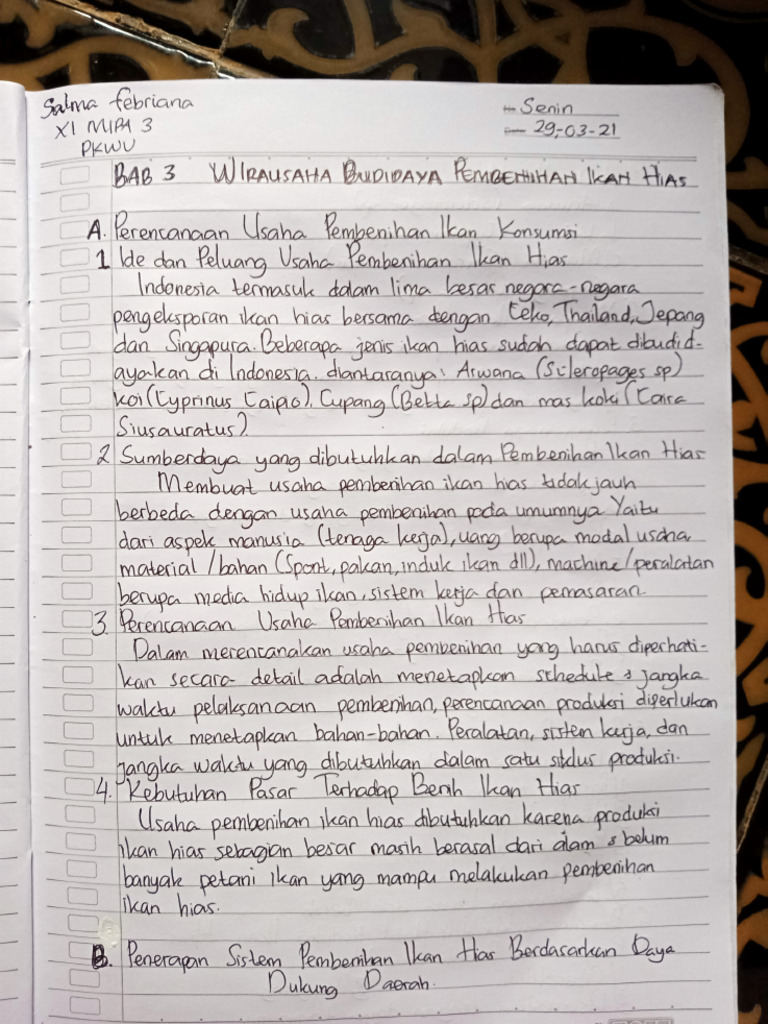 Salma febriana
XI MIPA 3
PKWU
- Senin
- 29-03-21
BAB 3 WIRAUSAHA BUDIDAYA PEMBENIHAN IKAN HIAS
A. Perencanaan Usaha Pembenihan Ikan Konsumsi
1 Ide dan Peluang Usaha Pembenihan Ikan Hias
Indonesia termasuk dalam lima besar negara-negara
pengeksporan ikan hias bersama dengan Ceko, Thailand, Jepang
dan Singapura. Beberapa jenis ikan hias sudah dapat dibudid-
ayakan di Indonesia. diantaranya: Arwana (Scleropages sp)
koi (Cyprinus Caipio). Cupang (Betta sp) dan mas koki (Cara
Siusauratus).
2 Sumberdaya yang dibutuhkan dalam Pembenihan Ikan Hias
Membuat usaha pembenihan ikan hias tidak jauh
berbeda dengan usaha pembenihan pada umumnya Yaitu
dari aspek manusia (tenaga kerja), uang berupa modal usaha,
material/bahan (Spont, pakan, induk ikan dll), machine/peralatan
berupa media hidup ikan, sistem kerja dan pemasaran.
3. Perencanaan Usaha Pembenihan Ikan Hias
Dalam merencanakan usaha pembenihan yang harus diperhati-
kan secara detail adalah menetapkan schedule & jangka
waktu pelaksanaan pembenihan, perencanaan produksi diperlukan
untuk menetapkan bahan-bahan. Peralatan, sistem kerja, dan
jangka waktu yang dibutuhkan dalam satu siklus produksi.
4. Kebutuhan Pasar Terhadap Benih Ikan Hias
Usaha pembenihan ikan hias dibutuhkan karena produksi
ikan hias sebagian besar masih berasal dari alam & belum
banyak petani ikan yang mampu melakukan pembenihan
ikan hias.
B. Penerapan Sistem Pembenihan Ikan Hias Berdasarkan Daya
Dukung Daerah.